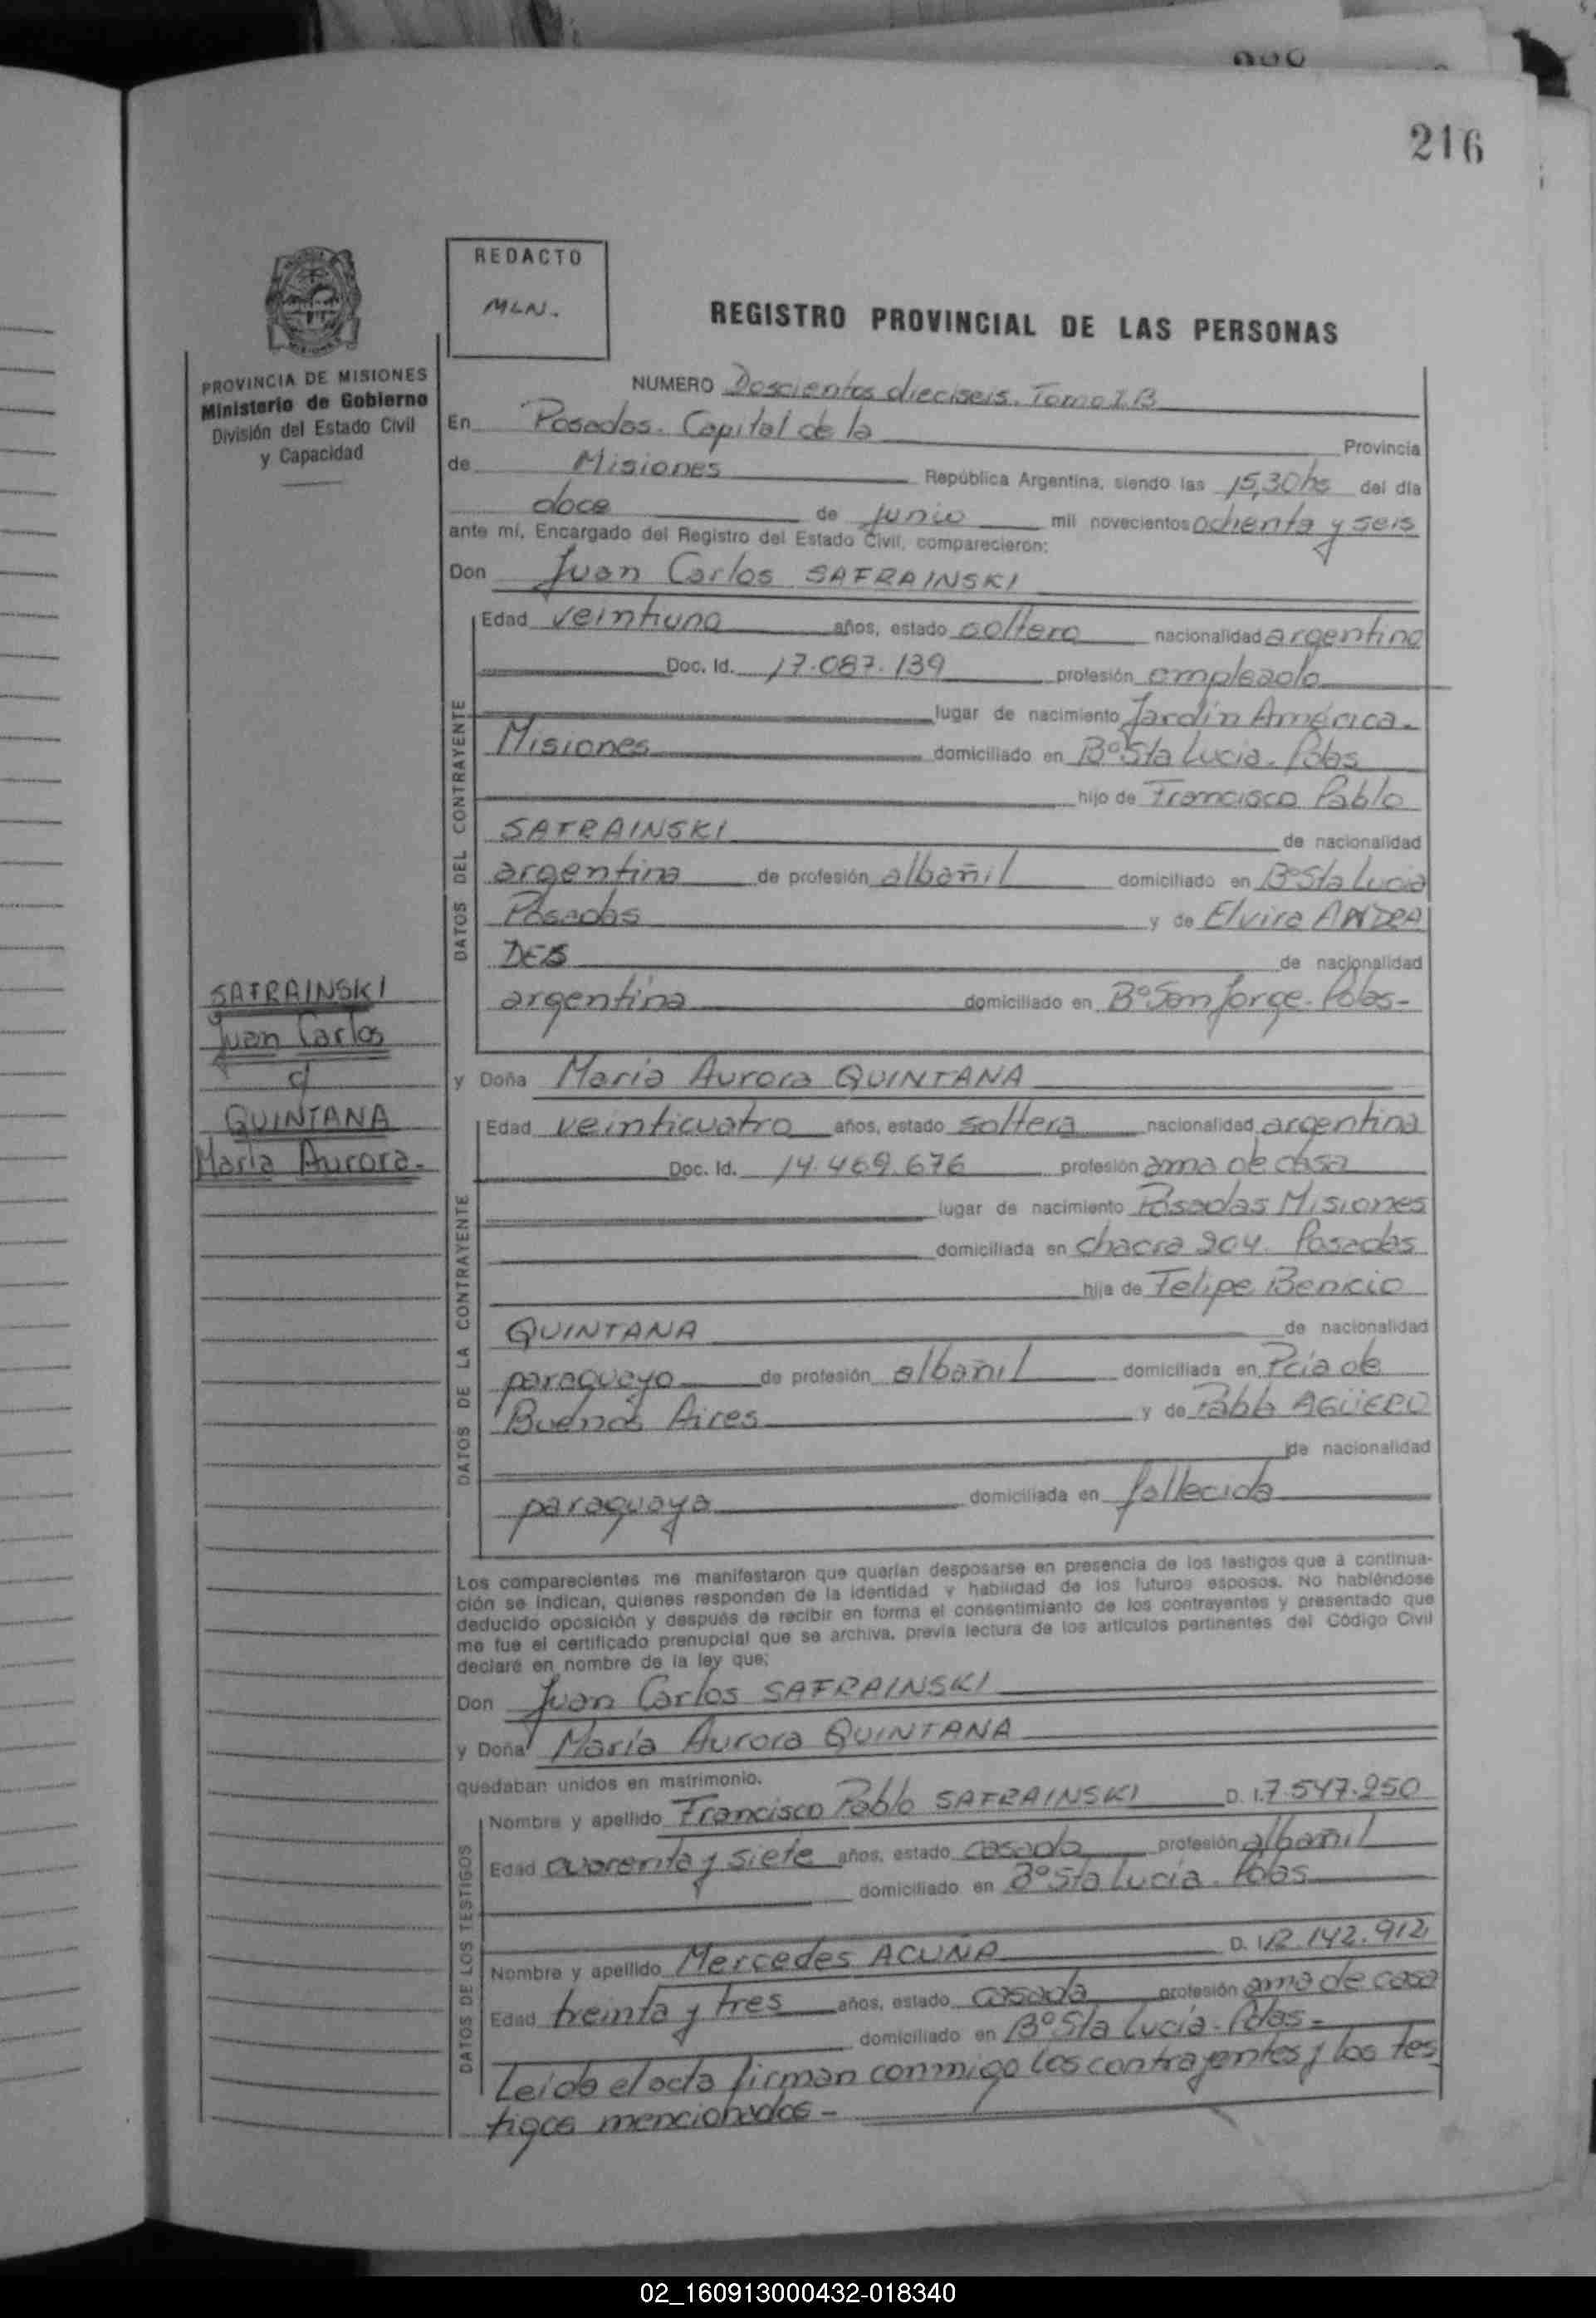 216
REDACTO
MLN.
REGISTRO PROVINCIAL DE LAS PERSONAS
PROVINCIA DE MISIONES
Ministerio de Gobierno
División del Estado Civil
y Capacidad
NUMERO Doscientos dieciseis. Tomo I.B
En Posadas. Capital de la Provincia
de Misiones República Argentina, siendo las 15,30 hs del día
doce de junio mil novecientos ochenta y seis
ante mí, Encargado del Registro del Estado Civil, comparecieron:
Don Juan Carlos SAFRAINSKI
DATOS DEL CONTRAYENTE
Edad veintiuno años, estado soltero nacionalidad argentino
Doc. Id. 17.087.139 profesión empleado
lugar de nacimiento Jardín América.
Misiones domiciliado en Bº Sta Lucia. Pdas
hijo de Francisco Pablo
SAFRAINSKI de nacionalidad
argentina de profesión albañil domiciliado en Bº Sta Lucia
Posadas y de Elvira ANDRA
DES de nacionalidad
argentina domiciliado en Bº San Jorge. Pdas-
SAFRAINSKI
Juan Carlos
c/
QUINTANA
María Aurora.
y Doña María Aurora QUINTANA
DATOS DE LA CONTRAYENTE
Edad veinticuatro años, estado soltera nacionalidad argentina
Doc. Id. 14.469.676 profesión ama de casa
lugar de nacimiento Posadas Misiones
domiciliada en chacra 204. Posadas
hija de Felipe Benicio
QUINTANA de nacionalidad
paraguayo de profesión albañil domiciliada en Pcia de
Buenos Aires y de Pabla AGÜERO
de nacionalidad
paraguaya domiciliada en fallecida
Los comparecientes me manifestaron que querían desposarse en presencia de los testigos que a continua-
ción se indican, quienes responden de la identidad y habilidad de los futuros esposos. No habiéndose
deducido oposición y después de recibir en forma el consentimiento de los contrayentes y presentado que
me fue el certificado prenupcial que se archiva, previa lectura de los artículos pertinentes del Código Civil
declaré en nombre de la ley que:
Don Juan Carlos SAFRAINSKI
y Doña María Aurora QUINTANA
quedaban unidos en matrimonio.
DATOS DE LOS TESTIGOS
Nombre y apellido Francisco Pablo SAFRAINSKI D. I. 7.547.250
Edad cuarenta y siete años, estado casado profesión albañil
domiciliado en Bº Sta Lucía. Pdas
Nombre y apellido Mercedes ACUÑA D. I. 12.142.912
Edad treinta y tres años, estado casada profesión ama de casa
domiciliado en Bº Sta Lucía. Pdas-
Leida el acta firman conmigo los contrayentes y los tes
tigos mencionados-
02_160913000432-018340